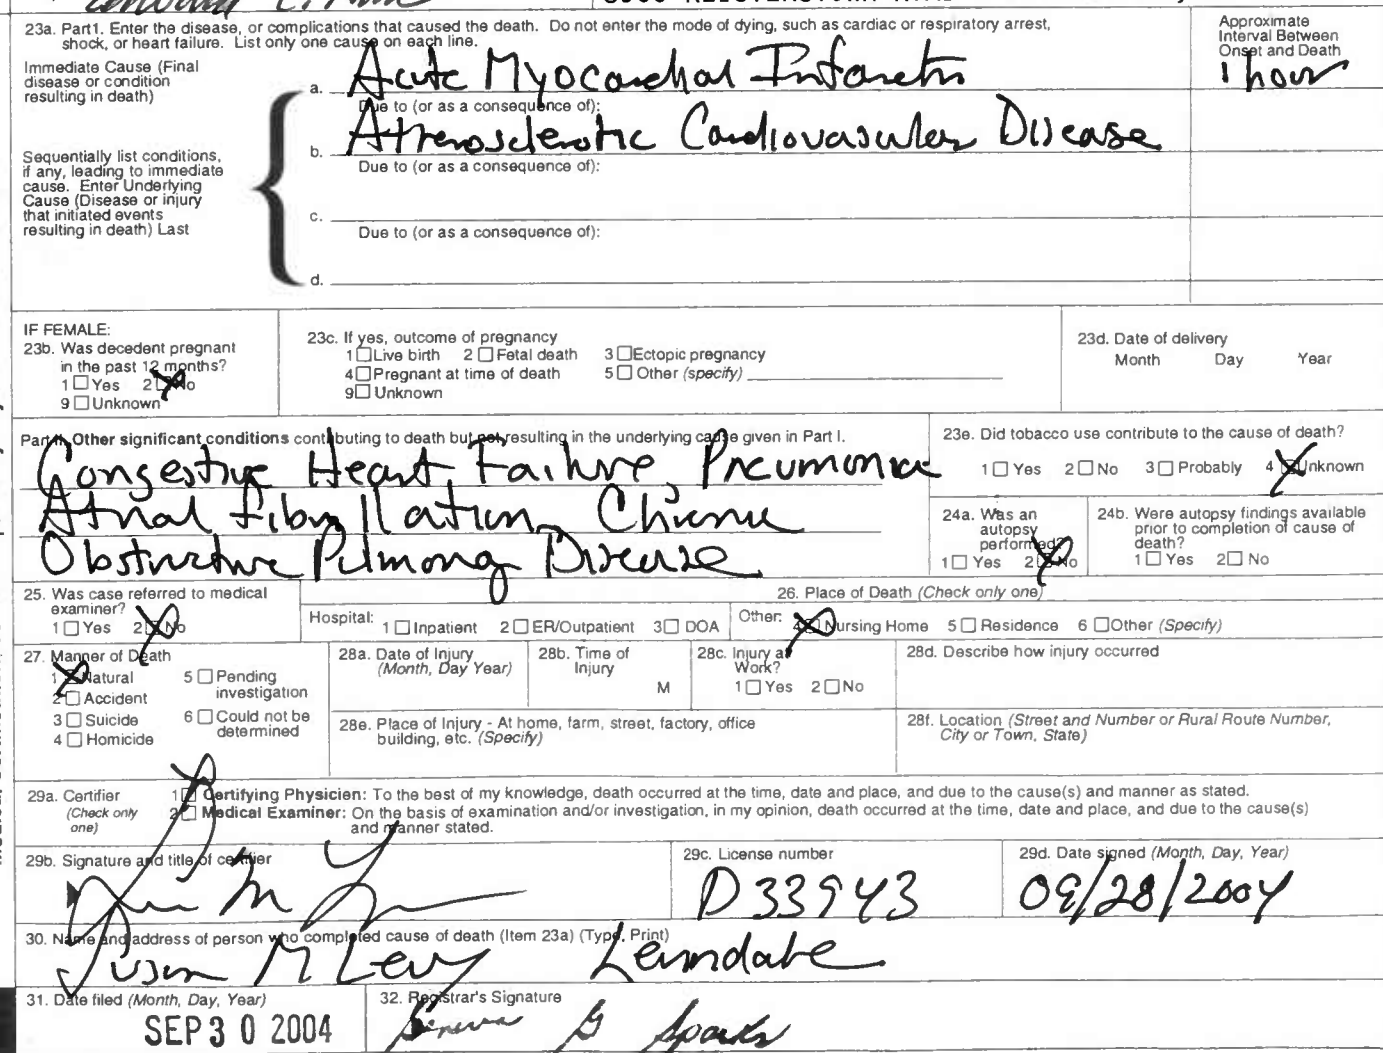 23a. Part1. Enter the disease, or complications that caused the death. Do not enter the mode of dying, such as cardiac or respiratory arrest,
shock, or heart failure. List only one cause on each line.
Approximate
Interval Between
Onset and Death
Immediate Cause (Final
disease or condition
resulting in death)
a. Acute Myocardial Infarctn
1 hour
Due to (or as a consequence of):
b. Atherosclerotic Cardiovascular Disease
Due to (or as a consequence of):
Sequentially list conditions,
if any, leading to immediate
cause. Enter Underlying
Cause (Disease or injury
that initiated events
resulting in death) Last
c.
Due to (or as a consequence of):
d.
IF FEMALE:
23b. Was decedent pregnant
in the past 12 months?
1 Yes 2 No
9 Unknown
23c. If yes, outcome of pregnancy
1 Live birth 2 Fetal death 3 Ectopic pregnancy
4 Pregnant at time of death 5 Other (specify)
9 Unknown
23d. Date of delivery
Month Day Year
Part II. Other significant conditions contributing to death but not resulting in the underlying cause given in Part I.
Congestive Heart Failure, Pneumonia
Atrial fibrillation, Chronic
Obstructive Pulmonary Disease
23e. Did tobacco use contribute to the cause of death?
1 Yes 2 No 3 Probably 4 Unknown
24a. Was an
autopsy
performed?
1 Yes 2 No
24b. Were autopsy findings available
prior to completion of cause of
death?
1 Yes 2 No
25. Was case referred to medical
examiner?
1 Yes 2 No
26. Place of Death (Check only one)
Hospital: 1 Inpatient 2 ER/Outpatient 3 DOA Other: 4 Nursing Home 5 Residence 6 Other (Specify)
27. Manner of Death
1 Natural
2 Accident
3 Suicide
4 Homicide
5 Pending
investigation
6 Could not be
determined
28a. Date of Injury
(Month, Day Year)
28b. Time of
Injury
M
28c. Injury at
Work?
1 Yes 2 No
28d. Describe how injury occurred
28e. Place of Injury - At home, farm, street, factory, office
building, etc. (Specify)
28f. Location (Street and Number or Rural Route Number,
City or Town, State)
29a. Certifier
(Check only
one)
1 Certifying Physician: To the best of my knowledge, death occurred at the time, date and place, and due to the cause(s) and manner as stated.
2 Medical Examiner: On the basis of examination and/or investigation, in my opinion, death occurred at the time, date and place, and due to the cause(s)
and manner stated.
29b. Signature and title of certifier
29c. License number
D33943
29d. Date signed (Month, Day, Year)
09/28/2004
30. Name and address of person who completed cause of death (Item 23a) (Type, Print)
Susan M Levy
31. Date filed (Month, Day, Year)
SEP 30 2004
32. Registrar's Signature
Geneva G Sparks